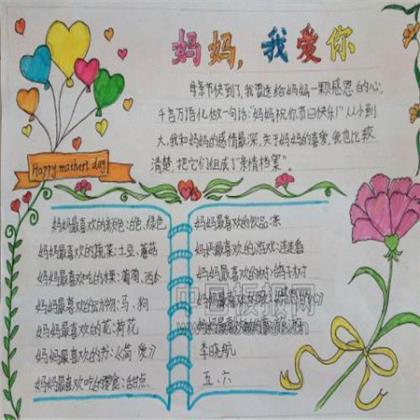 妈妈,我爱你
母亲节快到了,我要送给妈妈一颗感恩的心,
千言万语化做一句话:"妈妈祝你节日快乐!"从小到
大,我和妈妈的感情最深,关于妈妈的喜爱,我也比较
清楚,把它们组成了"亲情档案"
Happy mothers day
妈妈最喜欢的颜色:白色、绿色
妈妈最喜欢的蔬菜:土豆、蘑菇
妈妈最喜欢吃的水果:葡萄、西
妈妈最喜欢的动物:马、狗
妈妈最喜欢的花:荷花
妈妈最喜欢的书:《简·爱》
妈妈最喜欢吃的零食:甜点
妈妈最喜欢的饮品:茶
妈妈最喜欢的游戏:连连看
妈妈最喜欢的树:
妈妈最喜欢的
妈妈最喜欢的
李晓航
五、六
中国板报网